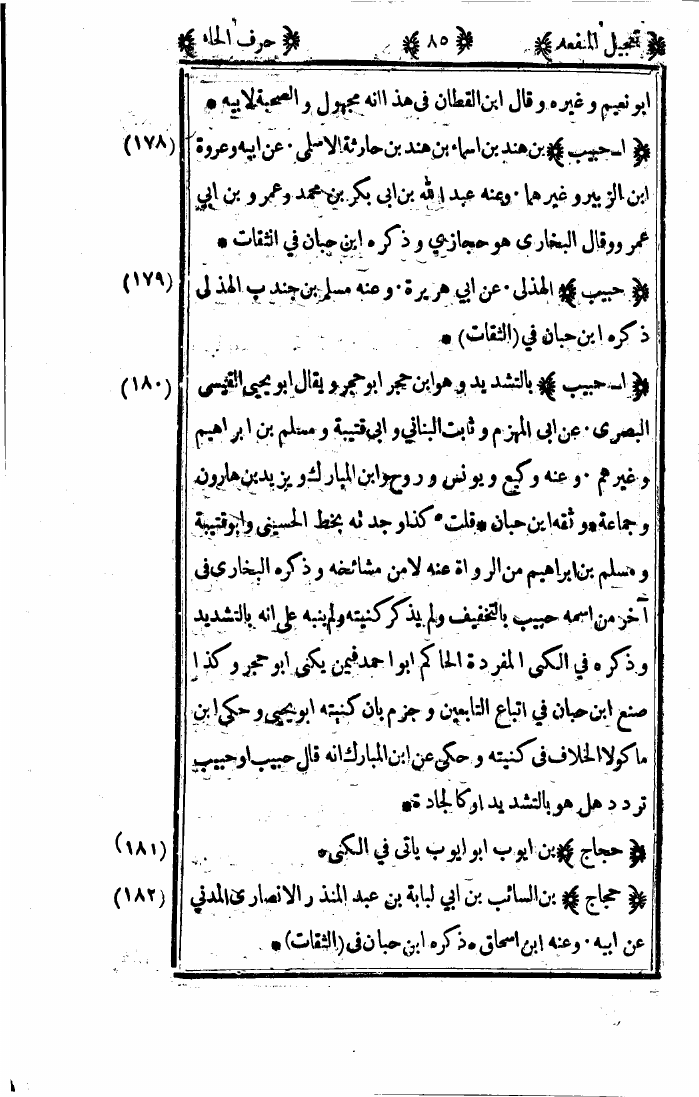 ﴿ تعجيل المنفعه ﴾ ﴿ ٨٥ ﴾ ﴿ حرف الحاء ﴾
ابو نعيم و غيره و قال ابن القطان فى هذا انه مجهول و الصحبة لابيه *
(١٧٨) ﴿ ا - حبيب ﴾ بن هند بن اسماء بن هند بن حارثة الاسلمى · عن ابيه وعروة
ابن الزبير و غير هما · وعنه عبد الله بن ابى بكر بن محمد وعمرو بن ابي
عمر ووقال البخارى هو حجازي و ذكره ابن حبان في الثقات *
(١٧٩) ﴿ حبيب ﴾ الهذلى · عن ابي هريرة · و عنه مسلم بن جندب الهذلى
ذكره ابن حبان في (الثقات) *
(١٨٠) ﴿ ا - حبيب ﴾ بالتشديد و هو ابن حجر ابو حجر و يقال ابو يحيى القيسى
البصرى · عن ابى المهزم و ثابت البناني و ابى قتيبة و مسلم بن ابراهيم
و غيرهم · و عنه وكيع و يونس و روح و ابن المبارك و يزيد بن هارون
و جماعة * و ثقه ابن حبان * قلت * كذا وجدته بخط الحسينى وابو قتيبة
و مسلم بن ابراهيم من الرواة عنه لا من مشائخه و ذكره البخارى فى
آخر من اسمه حبيب بالتخفيف ولم يذكر كنيته ولم ينبه على انه بالتشديد
وذكره في الكنى المفردة الحاكم ابو احمد فيمن يكنى ابو حجر و كذا
صنع ابن حبان في اتباع التابعين و جزم بان كنيته ابو يحيى و حكى ابن
ماكولا الخلاف فى كنيته و حكى عن ابن المبارك انه قال حبيب او حبيب
تردد هل هو بالتشديد او كالجادة *
(١٨١) ﴿ حجاج ﴾ بن ايوب ابو ايوب ياتى في الكنى *
(١٨٢) ﴿ حجاج ﴾ بن السائب بن أبي لبابة بن عبد المنذر الانصارى المدني
عن ابيه · وعنه ابن اسحاق * ذكره ابن حبان فى (الثقات) *